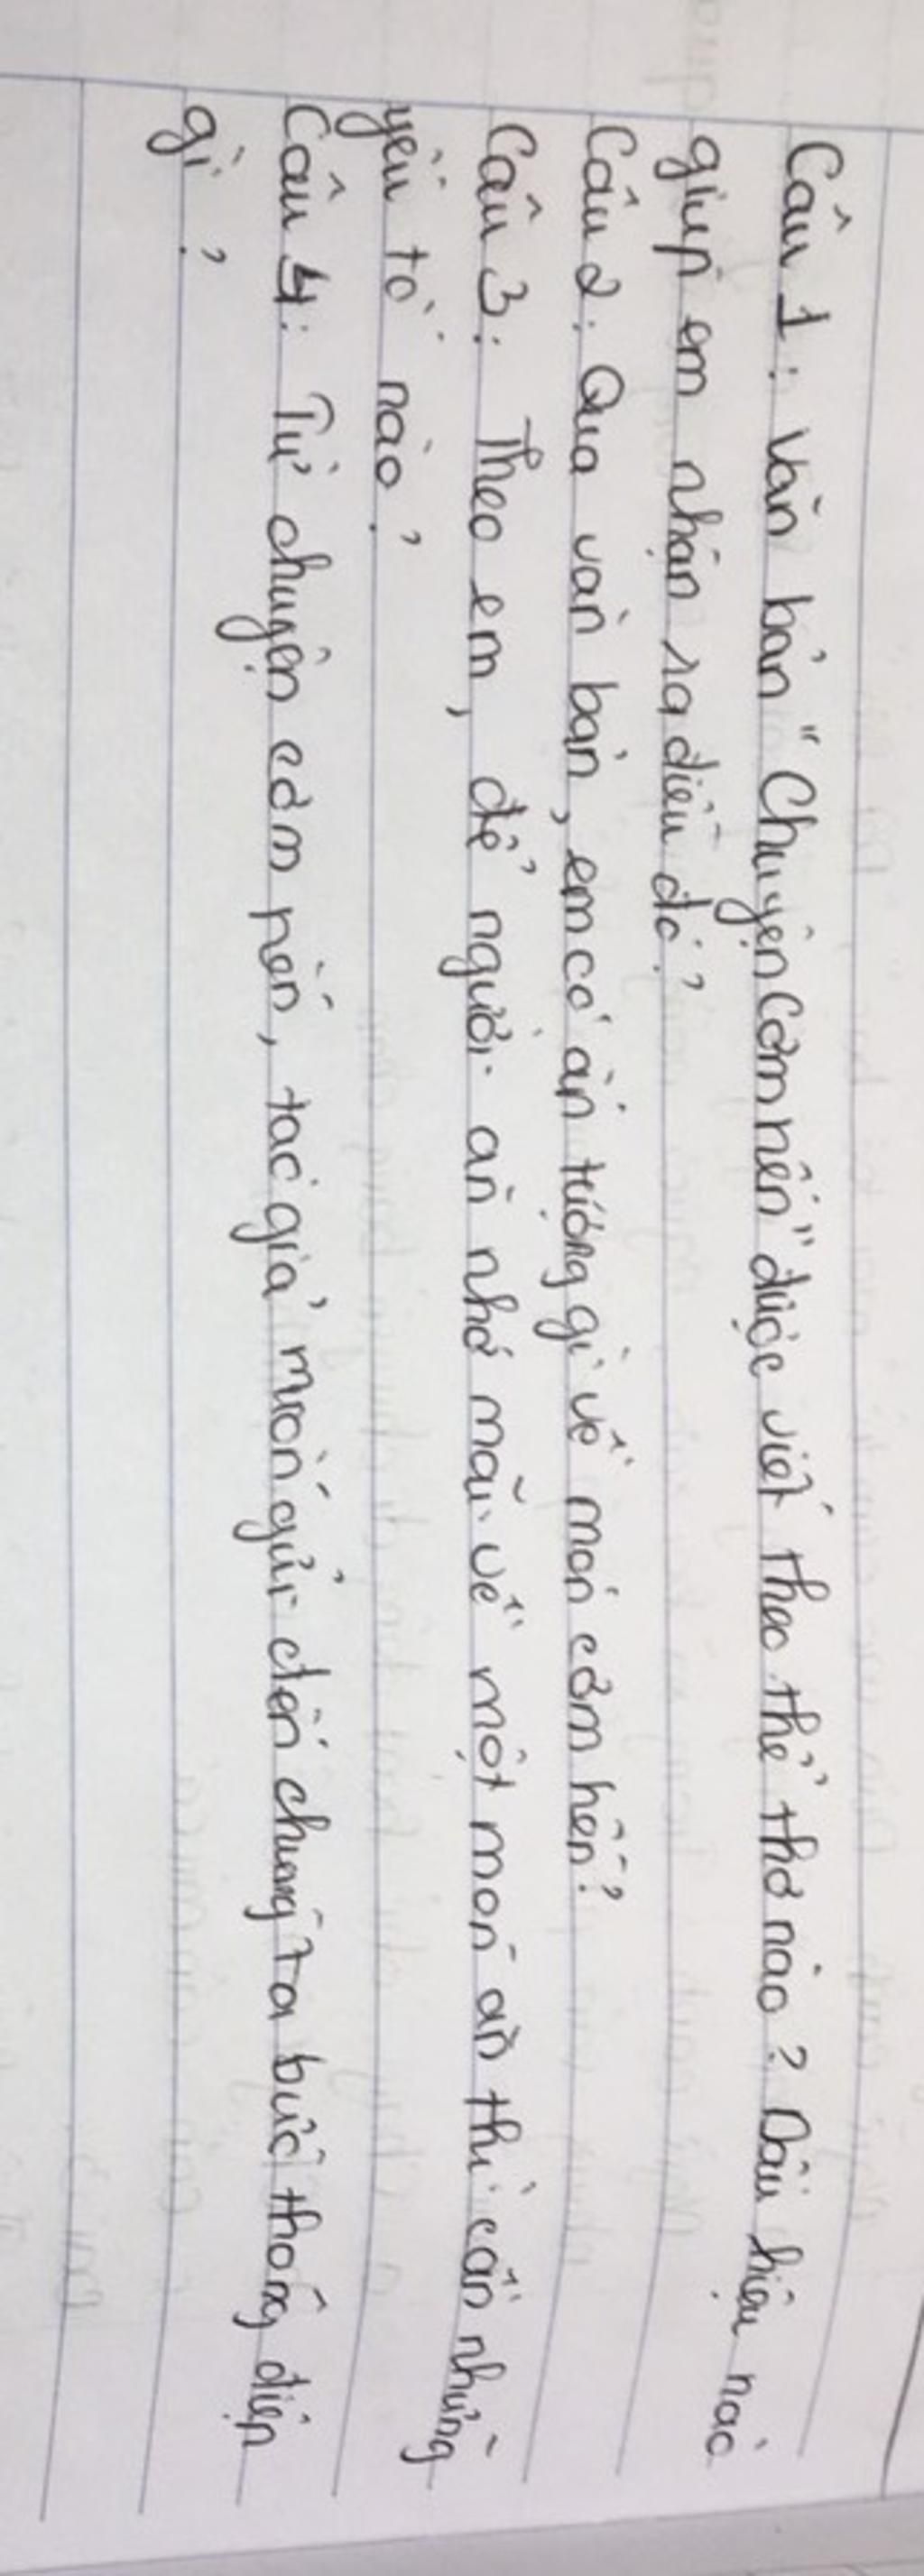 Câu 1: Văn bản "Chuyện Cơm hến" được viết theo thể thơ nào? Dấu hiệu nào
giúp em nhận ra điều đó?
Câu 2: Qua văn bản, em có ấn tượng gì về món cơm hến?
Câu 3: Theo em, để người ăn nhớ mãi về một món ăn thì cần những
yếu tố nào?
Câu 4: Từ chuyện cơm hến, tác giả muốn gửi đến chúng ta bức thông điệp
gì?